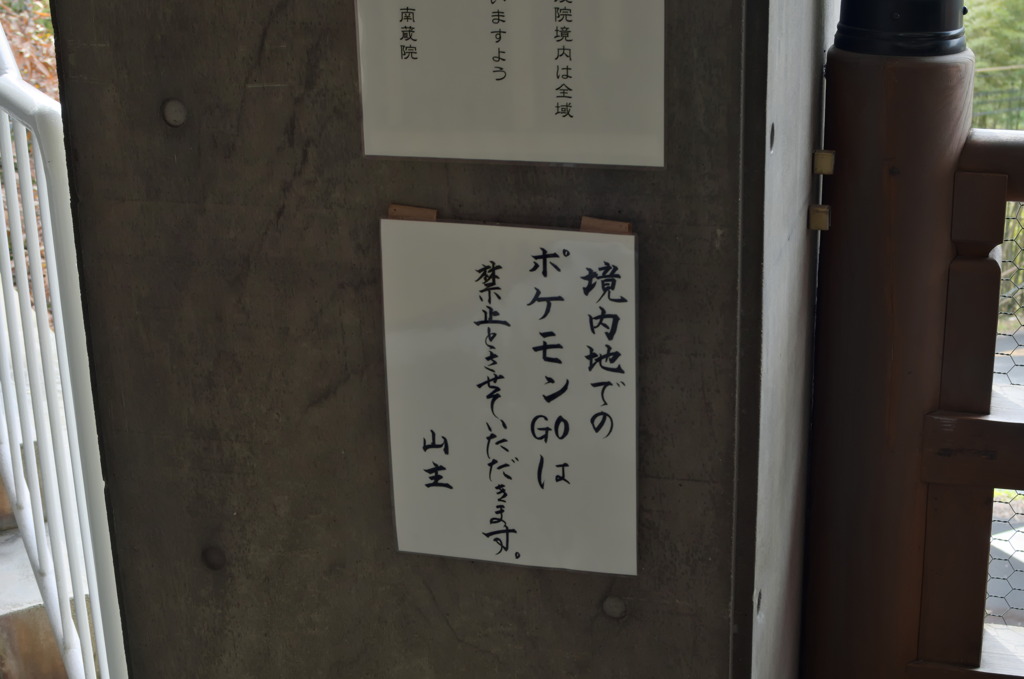 院境内は全域
いますよう
南蔵院
境内地での
ポケモンGOは
禁止とさせていただきます。
山主